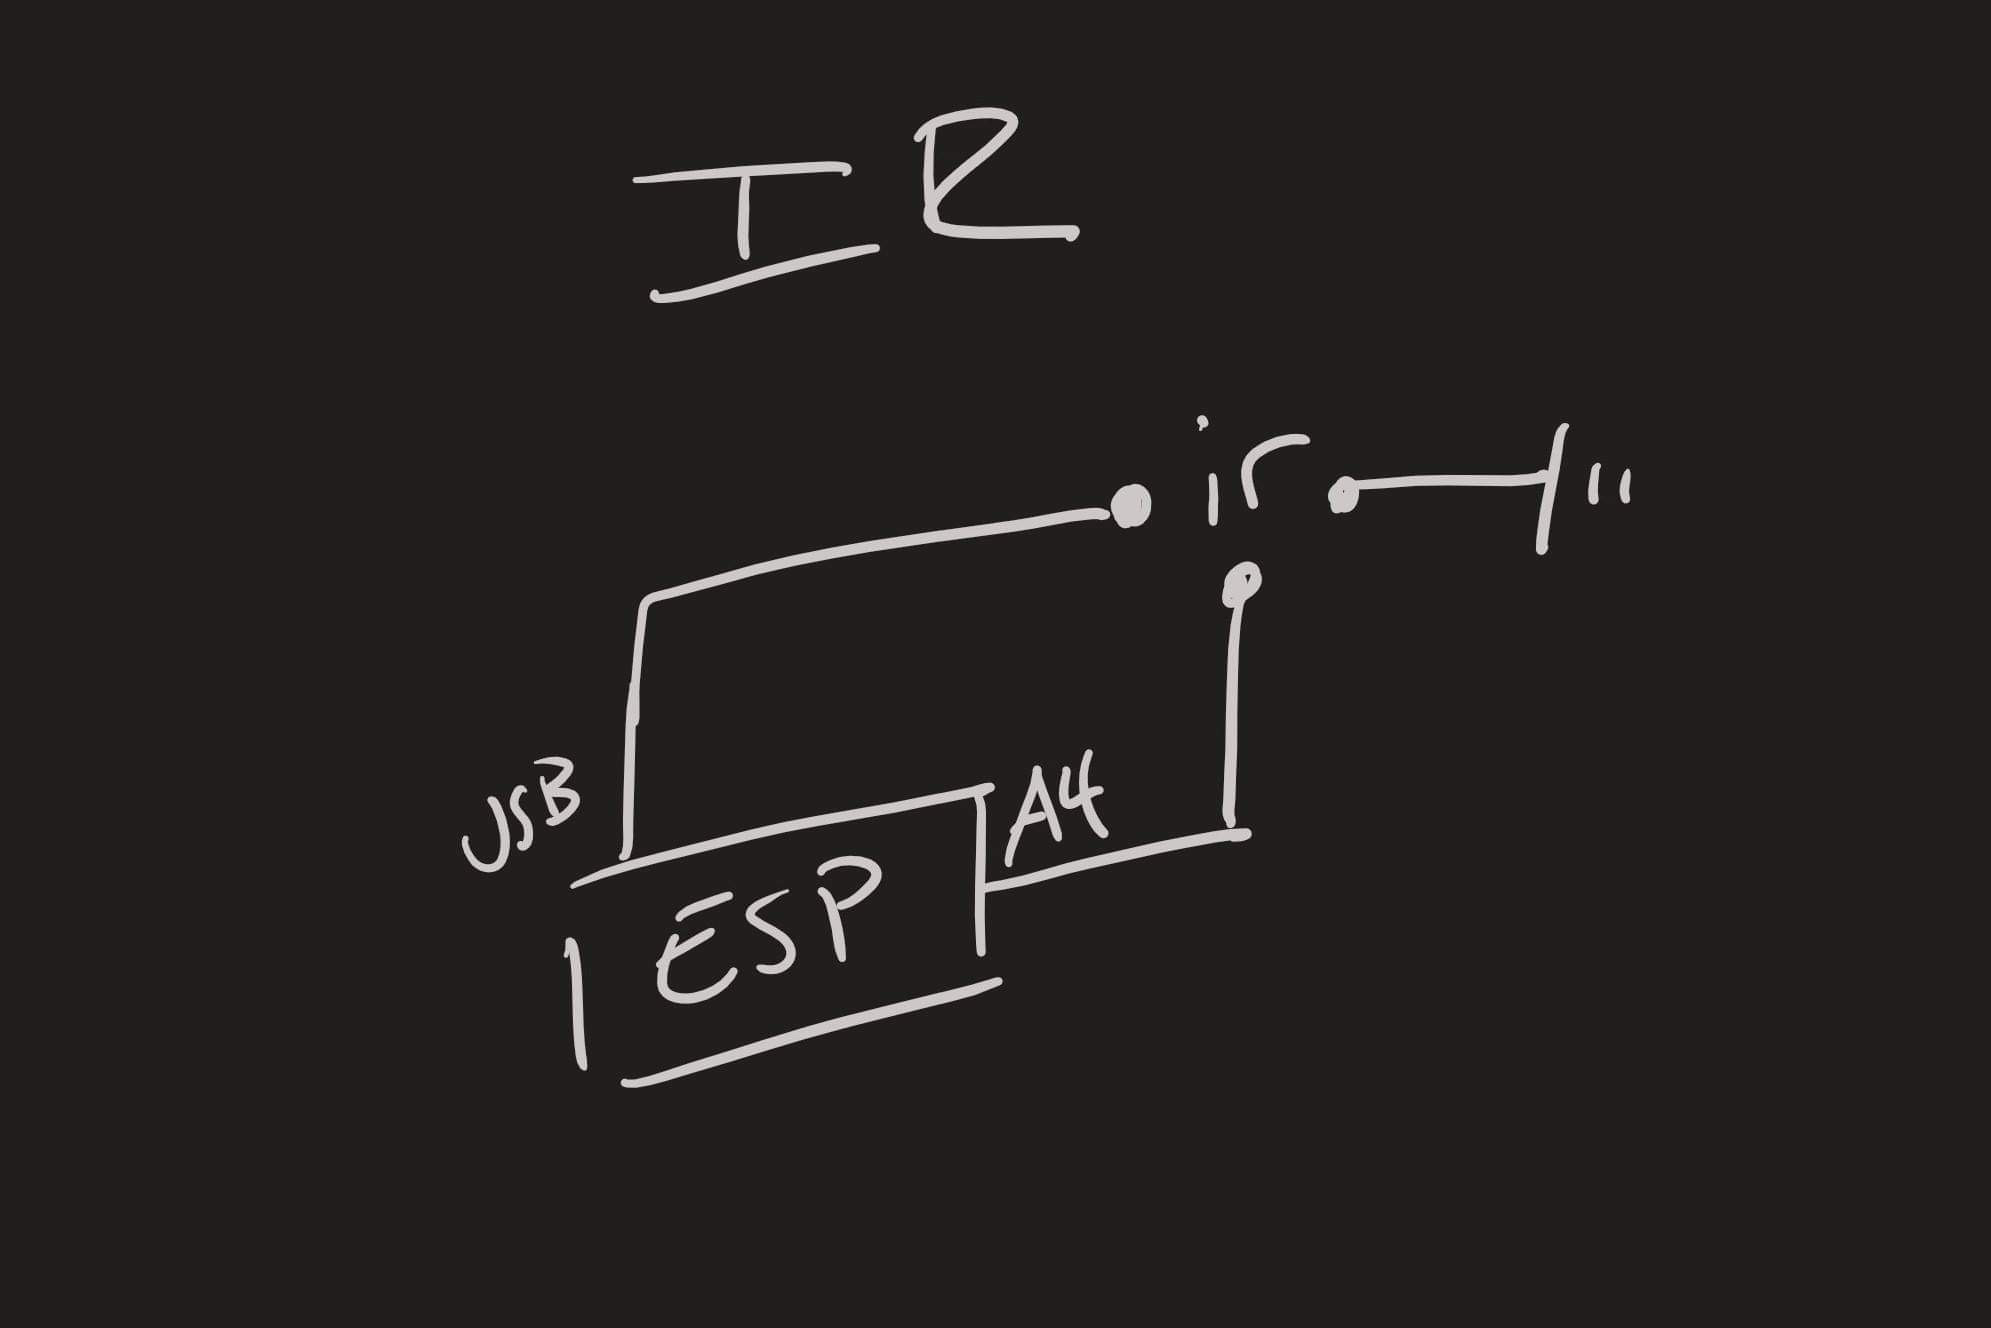 IR
ir
USB
A4
ESP